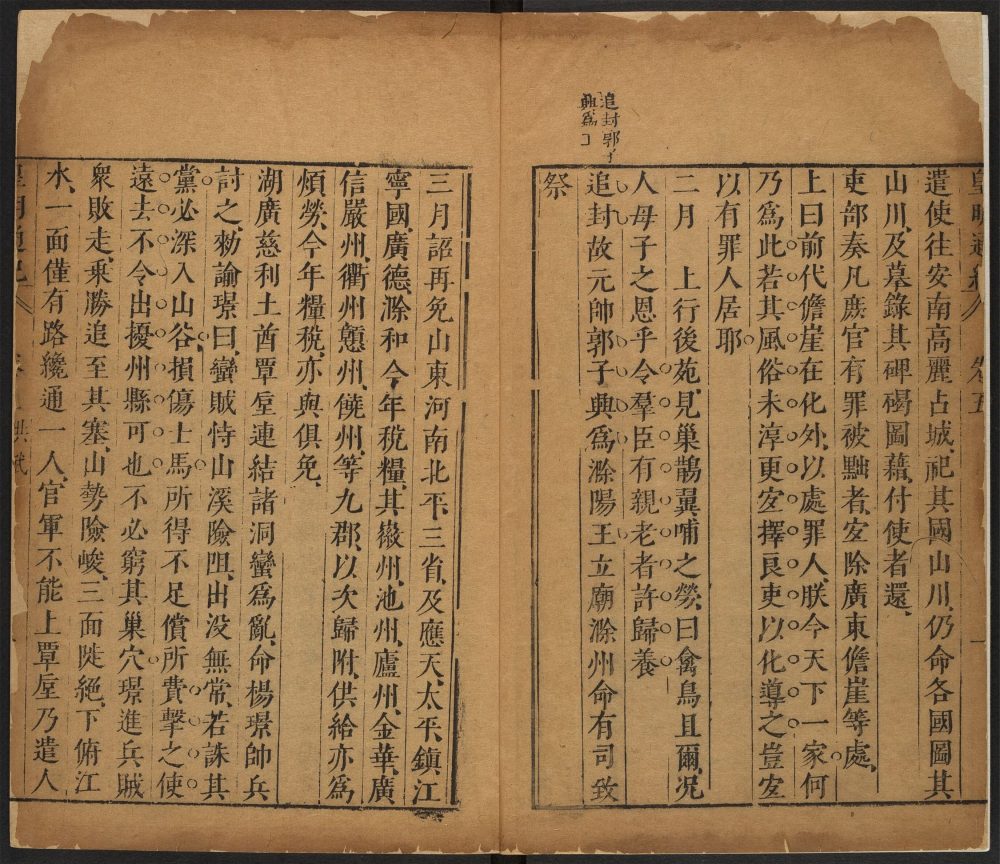 皇明通紀 卷五 一
遣使往安南高麗占城、祀其國山川、仍命各國圖其
山川、及墓錄其碑碣圖藉、付使者還、
吏部奏凡庶官有罪被黜者、宜除廣東儋崖等處、
上曰前代儋崖在化外、以處罪人、朕今天下一家何
乃爲此若其風俗未淳更宜擇良吏以化導之豈宜
以有罪人居耶
二月　上行後苑、見巢鵲翼哺之勞、曰禽鳥且爾、况
人母子之恩乎令羣臣有親老者許歸養
追封郭子
興爲
追封故元帥郭子興爲滁陽王立廟滁州命有司致
祭
三月詔再免山東河南北平、三省、及應天、太平、鎮江
寧國、廣德、滁和今年稅糧、其徽州、池州、廬州、金華、廣
信嚴州、衢州䖏州、饒州、等九郡、以次歸附、供給亦爲
煩勞、今年糧稅、亦與俱免、
湖廣慈利土酋覃垕連結諸洞蠻爲亂、命楊璟帥兵
討之、勑諭璟曰、蠻賊恃山溪險阻、出没無常、若誅其
黨必深入山谷、損傷士馬所得不足償所費擊之使
遠去不令出擾州縣可也不必窮其巢穴璟進兵賊
衆敗走、乘勝追至其塞、山勢險峻、三面陡絶、下俯江
水、一面僅有路纔通一人、官軍不能上覃垕乃遣人